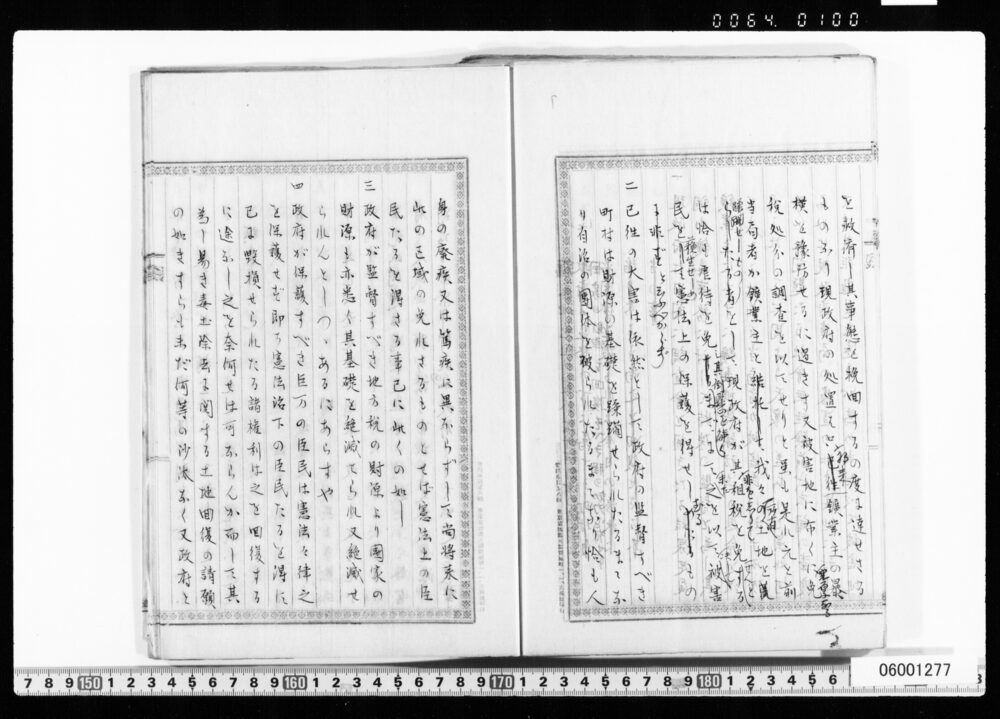 0064 0100
を救済し其事態を挽回するの度に達せさる
ものなり現政府の処置は 鉱業主の暴
横を予防せるに過きす又被害地に布くに免
租処分の調査を以てせりと雖も是れ元と前
当局者か鉱業主と結托して我々の土地を
たる者をして現政府が其租税を免する
は恰も虐待を免 之を以て被害
民をして憲法上の保護を得せし ものに
非ずと云ふべからず
二 已往の大害は依然として政府の監督すべき
町村は財源の基礎を蹂躙せられたるまでな
り自治の団体を破られたるまでなり恰も人
身の廃疾又は篤疾に異ならずして尚将来に
此の区域の免れさるものとせは憲法上の臣
民たるを得さる事已に此くの如し
三 政府が監督すべき地方税の財源より国家の
財源も亦悉く其基礎を絶滅てられ又絶滅せ
られんとしつゝあるにあらすや
四 政府が保護すべき巨万の臣民は憲法々律之
を保護せず即ち憲法治下の臣民たるを得に
已に毀損せられたる諸権利は之を回復する
に途なし之を奈何せは可ならんか而して其
為し易き毒土除去に関する土地回復の請願
の如きすらも未だ何等の沙汰なく又政府と
06001277
7 8 9 150 1 2 3 4 5 6 7 8 9 160 1 2 3 4 5 6 7 8 9 170 1 2 3 4 5 6 7 8 9 180 1 2 3 4 5 6